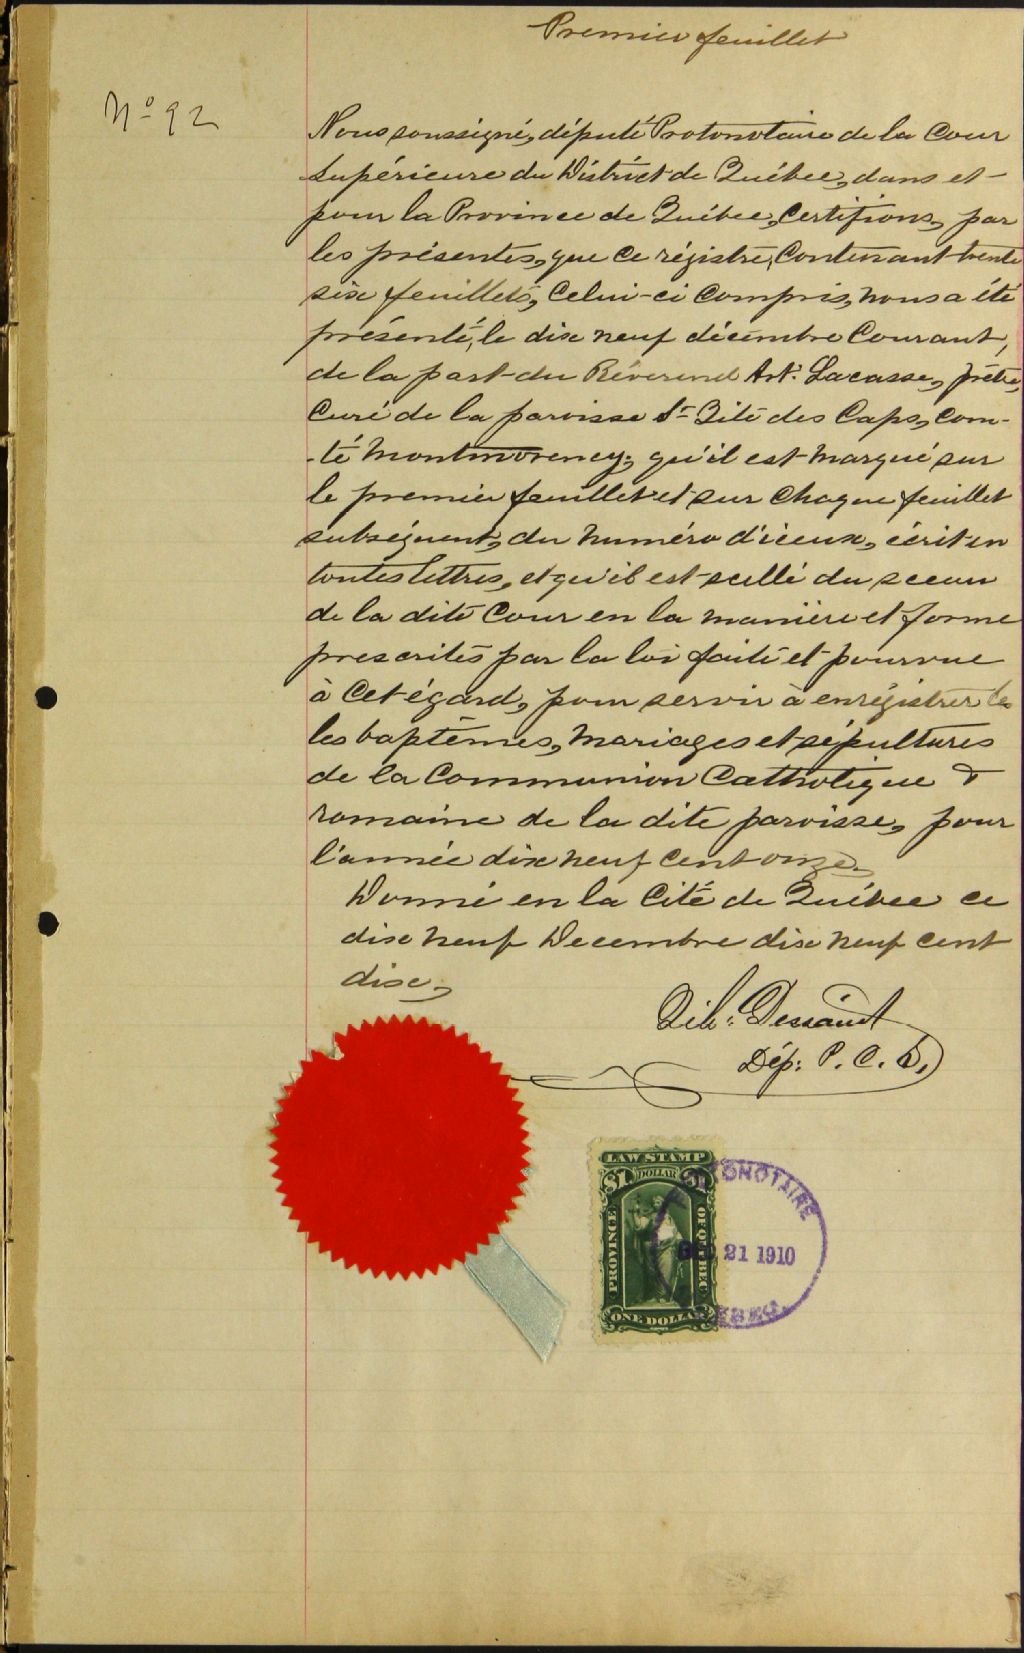 Premier feuillet
No 92
Nous soussigné, député Protonotaire de la Cour
Supérieure du District de Québec, dans et
pour la Province de Québec, Certifions, par
les présentes, que ce régistre, Contenant trente
six feuillets, Celui-ci Compris, nous a été
présenté, le dix neuf décembre Courant,
de la part du Révérend Art. Lacasse, prêtre,
Curé de la paroisse St Tite des Caps, Com-
-té Montmorency; qu'il est marqué sur
le premier feuillet et sur chaque feuillet
subséquent, du numéro d'iceux, écrit en
toutes lettres, et qu'il est scellé du sceau
de la dite Cour en la manière et forme
prescrites par la loi faite et pourvue
à Cet égard, pour servir à enrégistrer les
les baptêmes, Mariages et sépultures
de la Communion Catholique &
romaine de la dite paroisse, pour
l'année dix neuf Cent onze.
Donné en la Cité de Québec ce
dix neuf Decembre dix neuf cent
dix,
Dép: P. C. S.
LAW STAMP
$1 DOLLAR $1
PROVINCE OF QUEBEC
ONE DOLLAR
PROTONOTAIRE
DEC 21 1910
QUEBEC